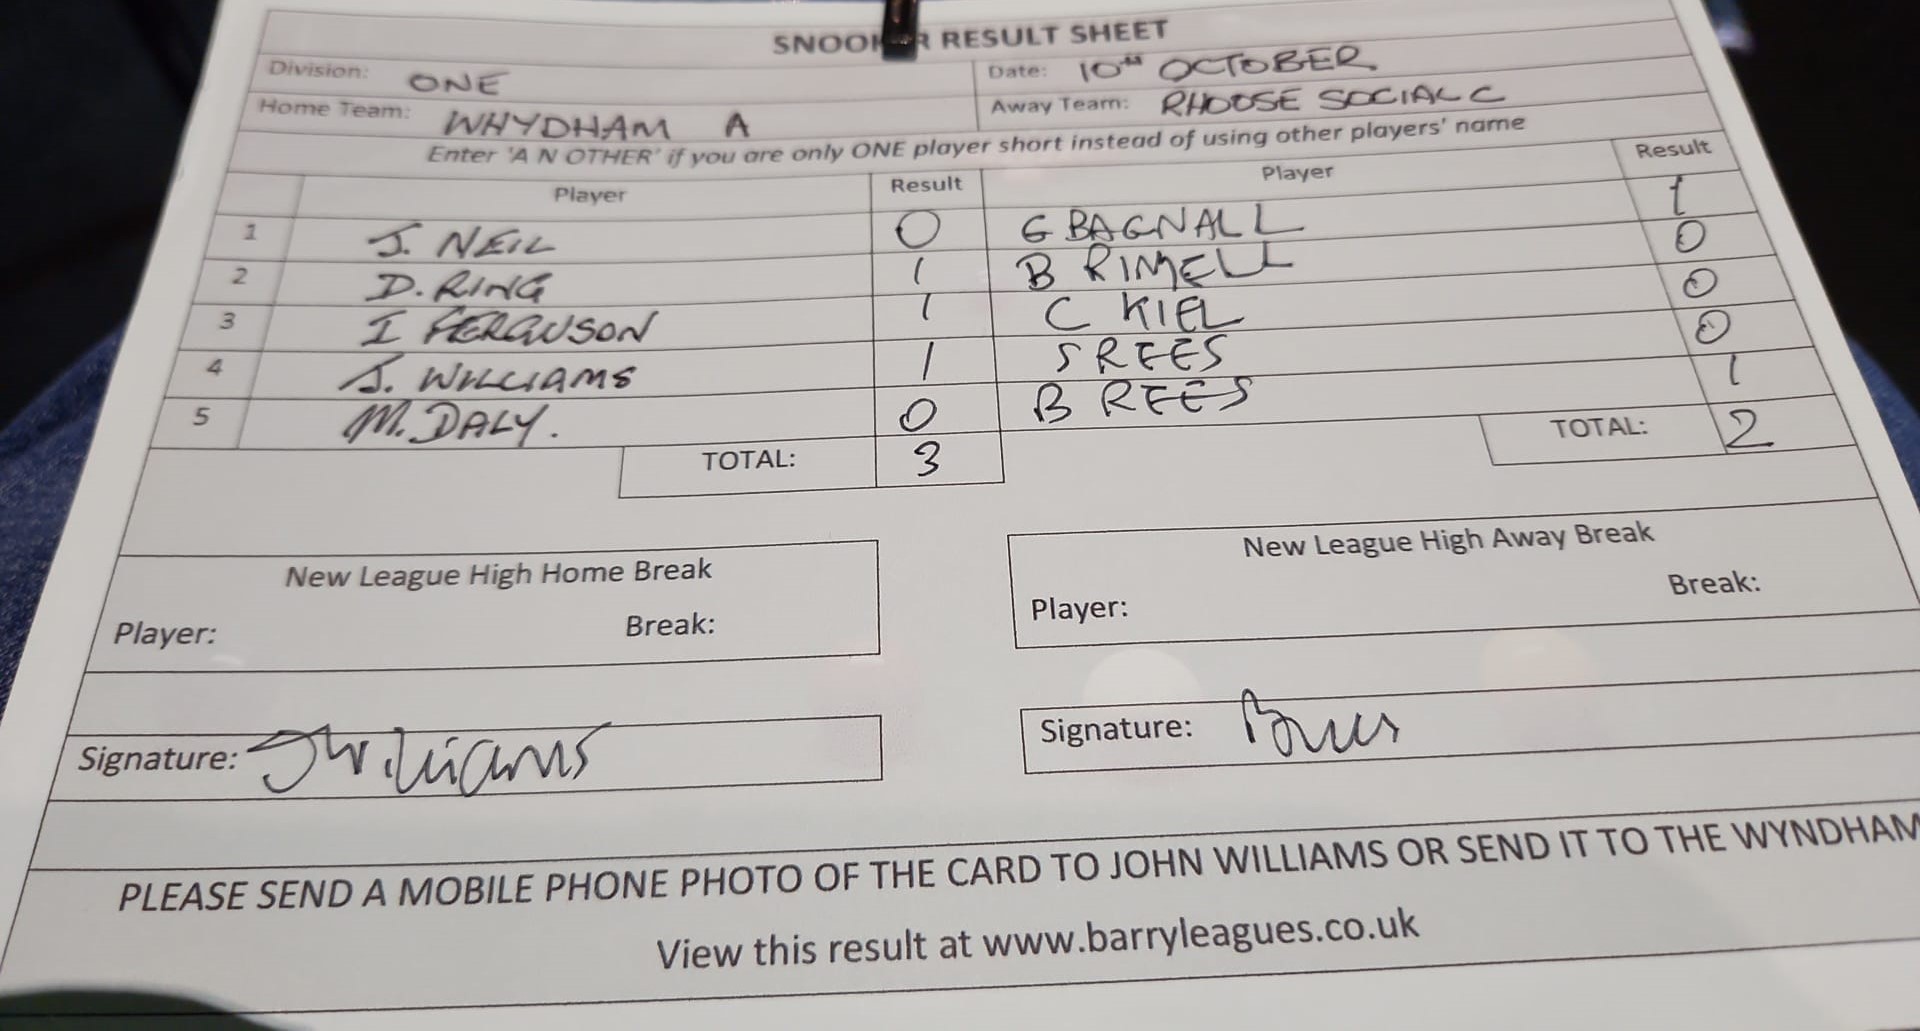 SNOOKER RESULT SHEET
Division: ONE Date: 10TH OCTOBER
Home Team: WHYDHAM A Away Team: RHOOSE SOCIAL C
Enter 'A N OTHER' if you are only ONE player short instead of using other players' name
Player Result Player Result
1 J. NEIL 0 G BAGNALL 1
2 D. RING 1 B RIMELL 0
3 I FERGUSON 1 C KIEL 0
4 J. WILLIAMS 1 S REES 0
5 M. DALY. 0 B REES 1
TOTAL: 3 TOTAL: 2
New League High Home Break New League High Away Break
Player: Break: Player: Break:
Signature: JWilliams Signature:
PLEASE SEND A MOBILE PHONE PHOTO OF THE CARD TO JOHN WILLIAMS OR SEND IT TO THE WYNDHAM
View this result at www.barryleagues.co.uk